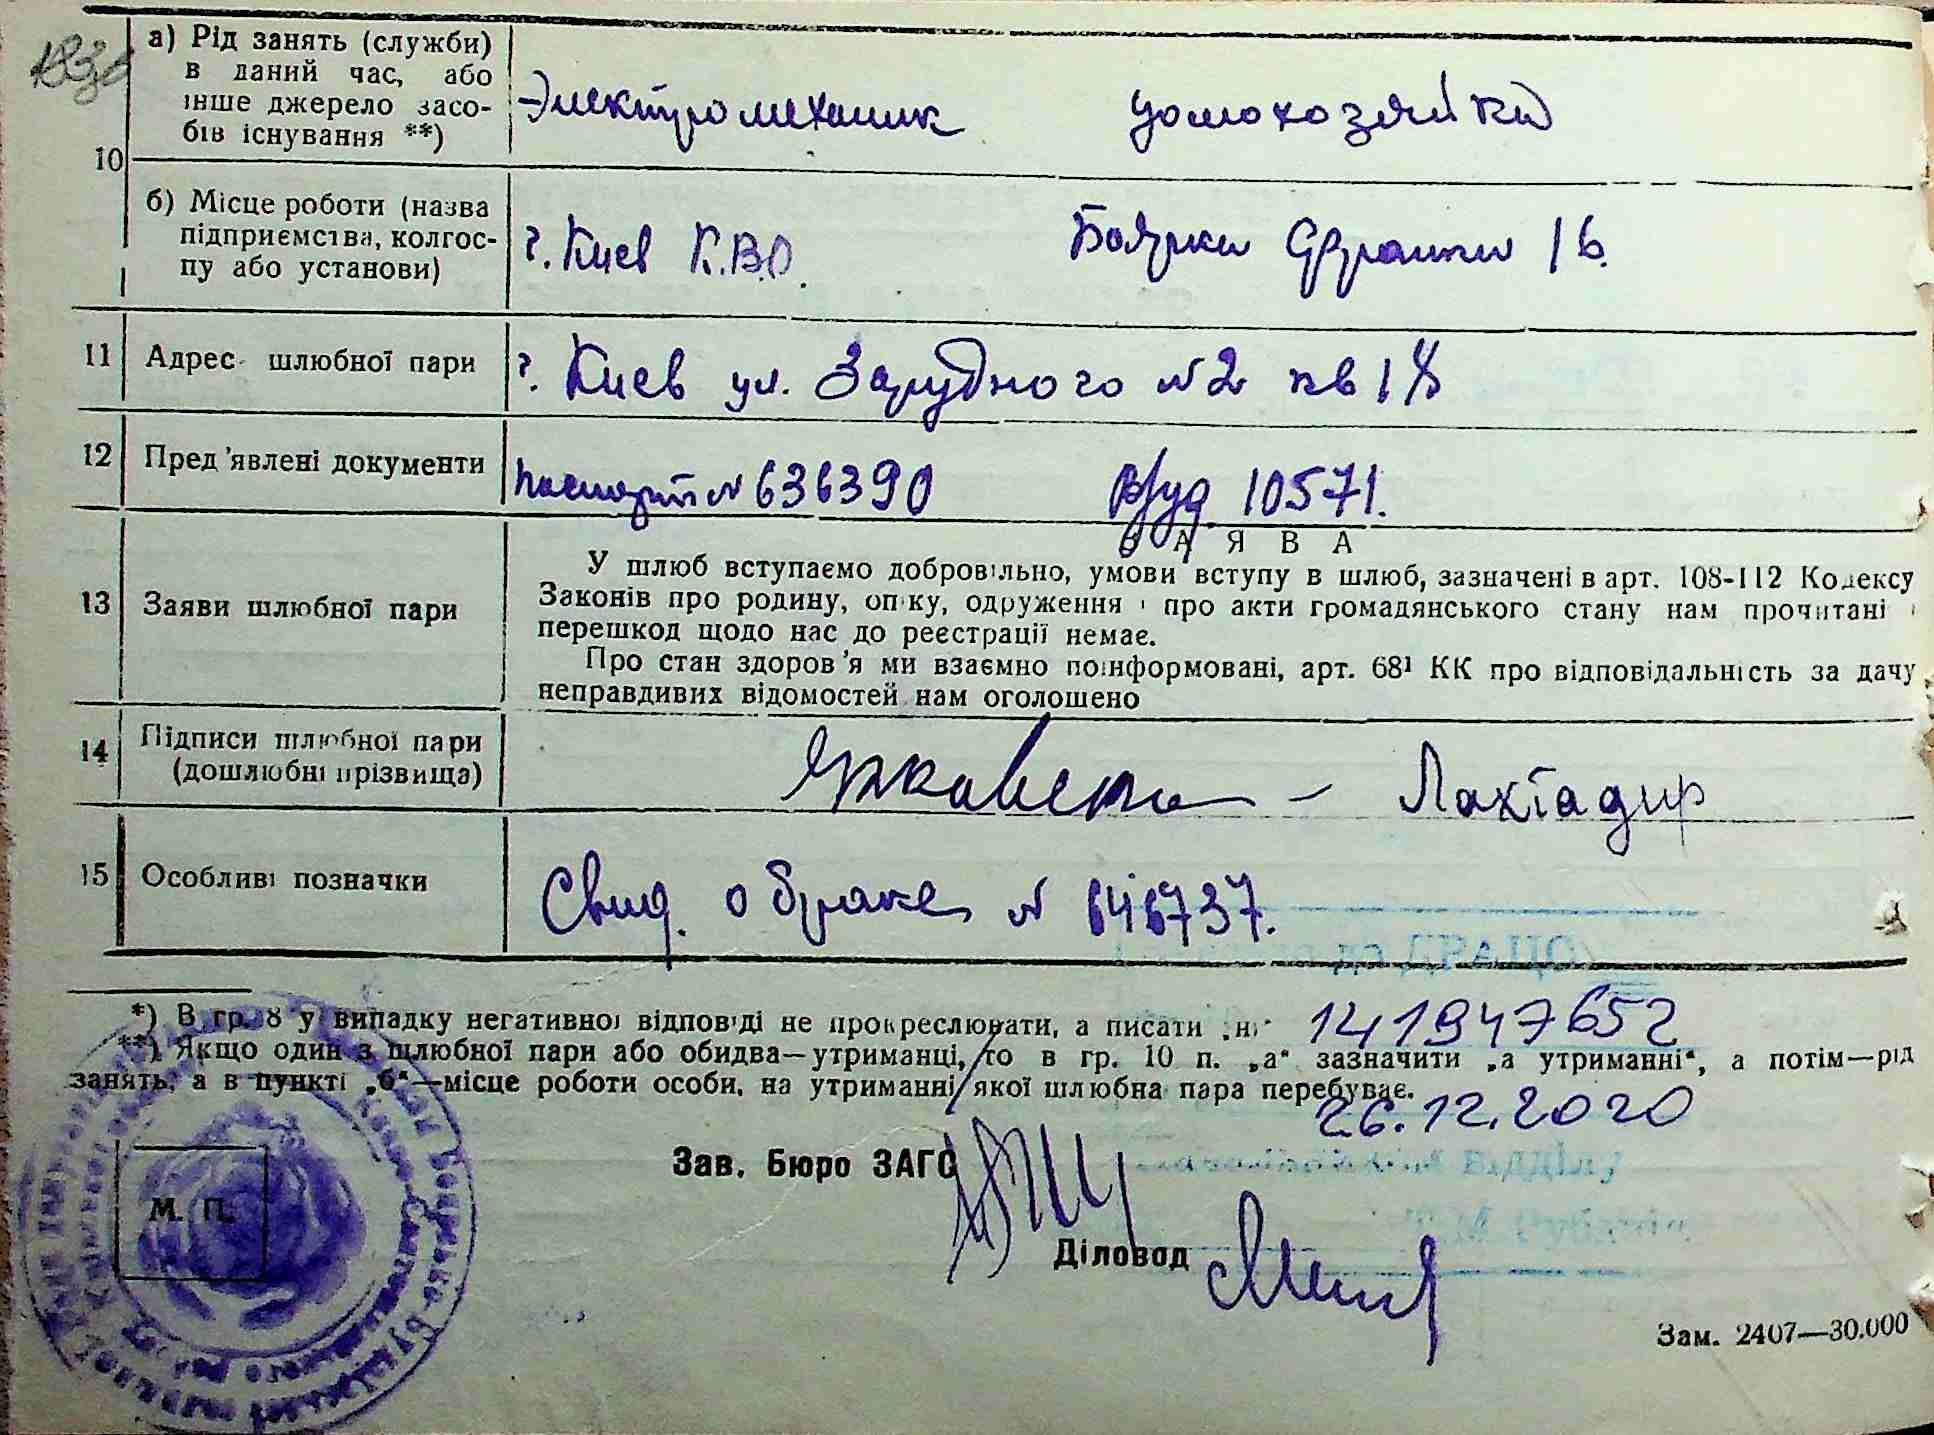 а) Рід занять (служби)
в даний час, або
інше джерело засо-
бів існування **)
Электромеханик домохозяйка
10
б) Місце роботи (назва
підприємства, колгос-
пу або установи)
г. Киев К.В.О. Боярка 16.
11 Адрес шлюбної пари г. Киев ул. Зарудного №2 кв 18
12 Пред'явлені документи паспорт № 636390 в/уд 10571.
ЗАЯВА
13 Заяви шлюбної пари
У шлюб вступаємо добровільно, умови вступу в шлюб, зазначені в арт. 108-112 Кодексу
Законів про родину, опіку, одруження і про акти громадянського стану нам прочитані і
перешкод щодо нас до реєстрації немає.
Про стан здоров'я ми взаємно поінформовані, арт. 68¹ КК про відповідальність за дачу
неправдивих відомостей нам оголошено
14 Підписи шлюбної пари
(дошлюбні прізвища)
Лахтадир
15 Особливі позначки Свид. о браке № 646737.
до ДРАЦС
*) В гр. 8 у випадку негативної відповіді не прокреслювати, а писати „ні“
141947652
**) Якщо один з шлюбної пари або обидва—утриманці, то в гр. 10 п. „а“ зазначити „а утриманні“, а потім—рід
занять, а в пункті „б“—місце роботи особи, на утриманні якої шлюбна пара перебуває.
26.12.2020
відділу
Зав. Бюро ЗАГС
М. П.
Діловод
Зам. 2407—30.000